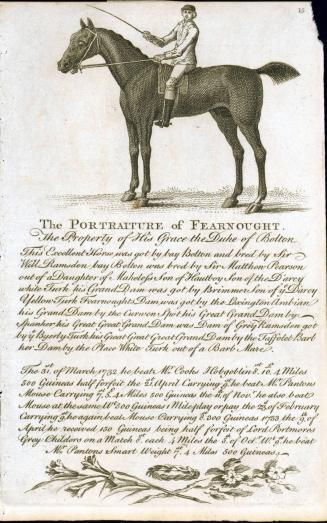 15
The PORTRAITURE of FEARNOUGHT.
The Property of His Grace the Duke of Bolton
This Excellent Horse was got by bay Bolton and bred by Sir
Will Ramsden bay Bolton was bred by Sir Matthew Pearson
out of a Daughter of Makeless Son of Hautboy Son of the D'arcy
white Turk his Grand Dam was got by Brimmer Son of ye Darcy
Yellow Turk Fearnought Dam was got by the Lexington Arabian
his Grand Dam by the Curwen Spot his Great Grand Dam by
Spanker his Great Great Grand Dam was Dam of Grey Ramsden got
by ye Byerly Turk his Great Great Great Grand Dam by the Taffolet Barb
her Dam by the Place White Turk out of a Barb Mare.
The 31st. of March 1732 he beat Mr. Cooks Hobgoblin 8st. 10. 4 Miles
500 Guineas half forfeit the 21 April Carrying ye he beat Mr. Pantons
Mouse Carrying 7, 5 4 Miles 500 Guineas the 11 of Nov.r he also beat
Mouse at the same Wt. 200 Guineas 1 Mile play or pay the 22d. of February
Carrying ye he again beat Mouse Carrying 8. 200 Guineas 1733 the 9. of
April he received 150 Guineas being half forfeit of Lord Portmores
Grey Childers on a Match 8st. each. 4 Miles the 5. of Octr. Wt. 9 he beat
Mr. Pantons Smart Weight 7. 4 Miles 300 Guineas,